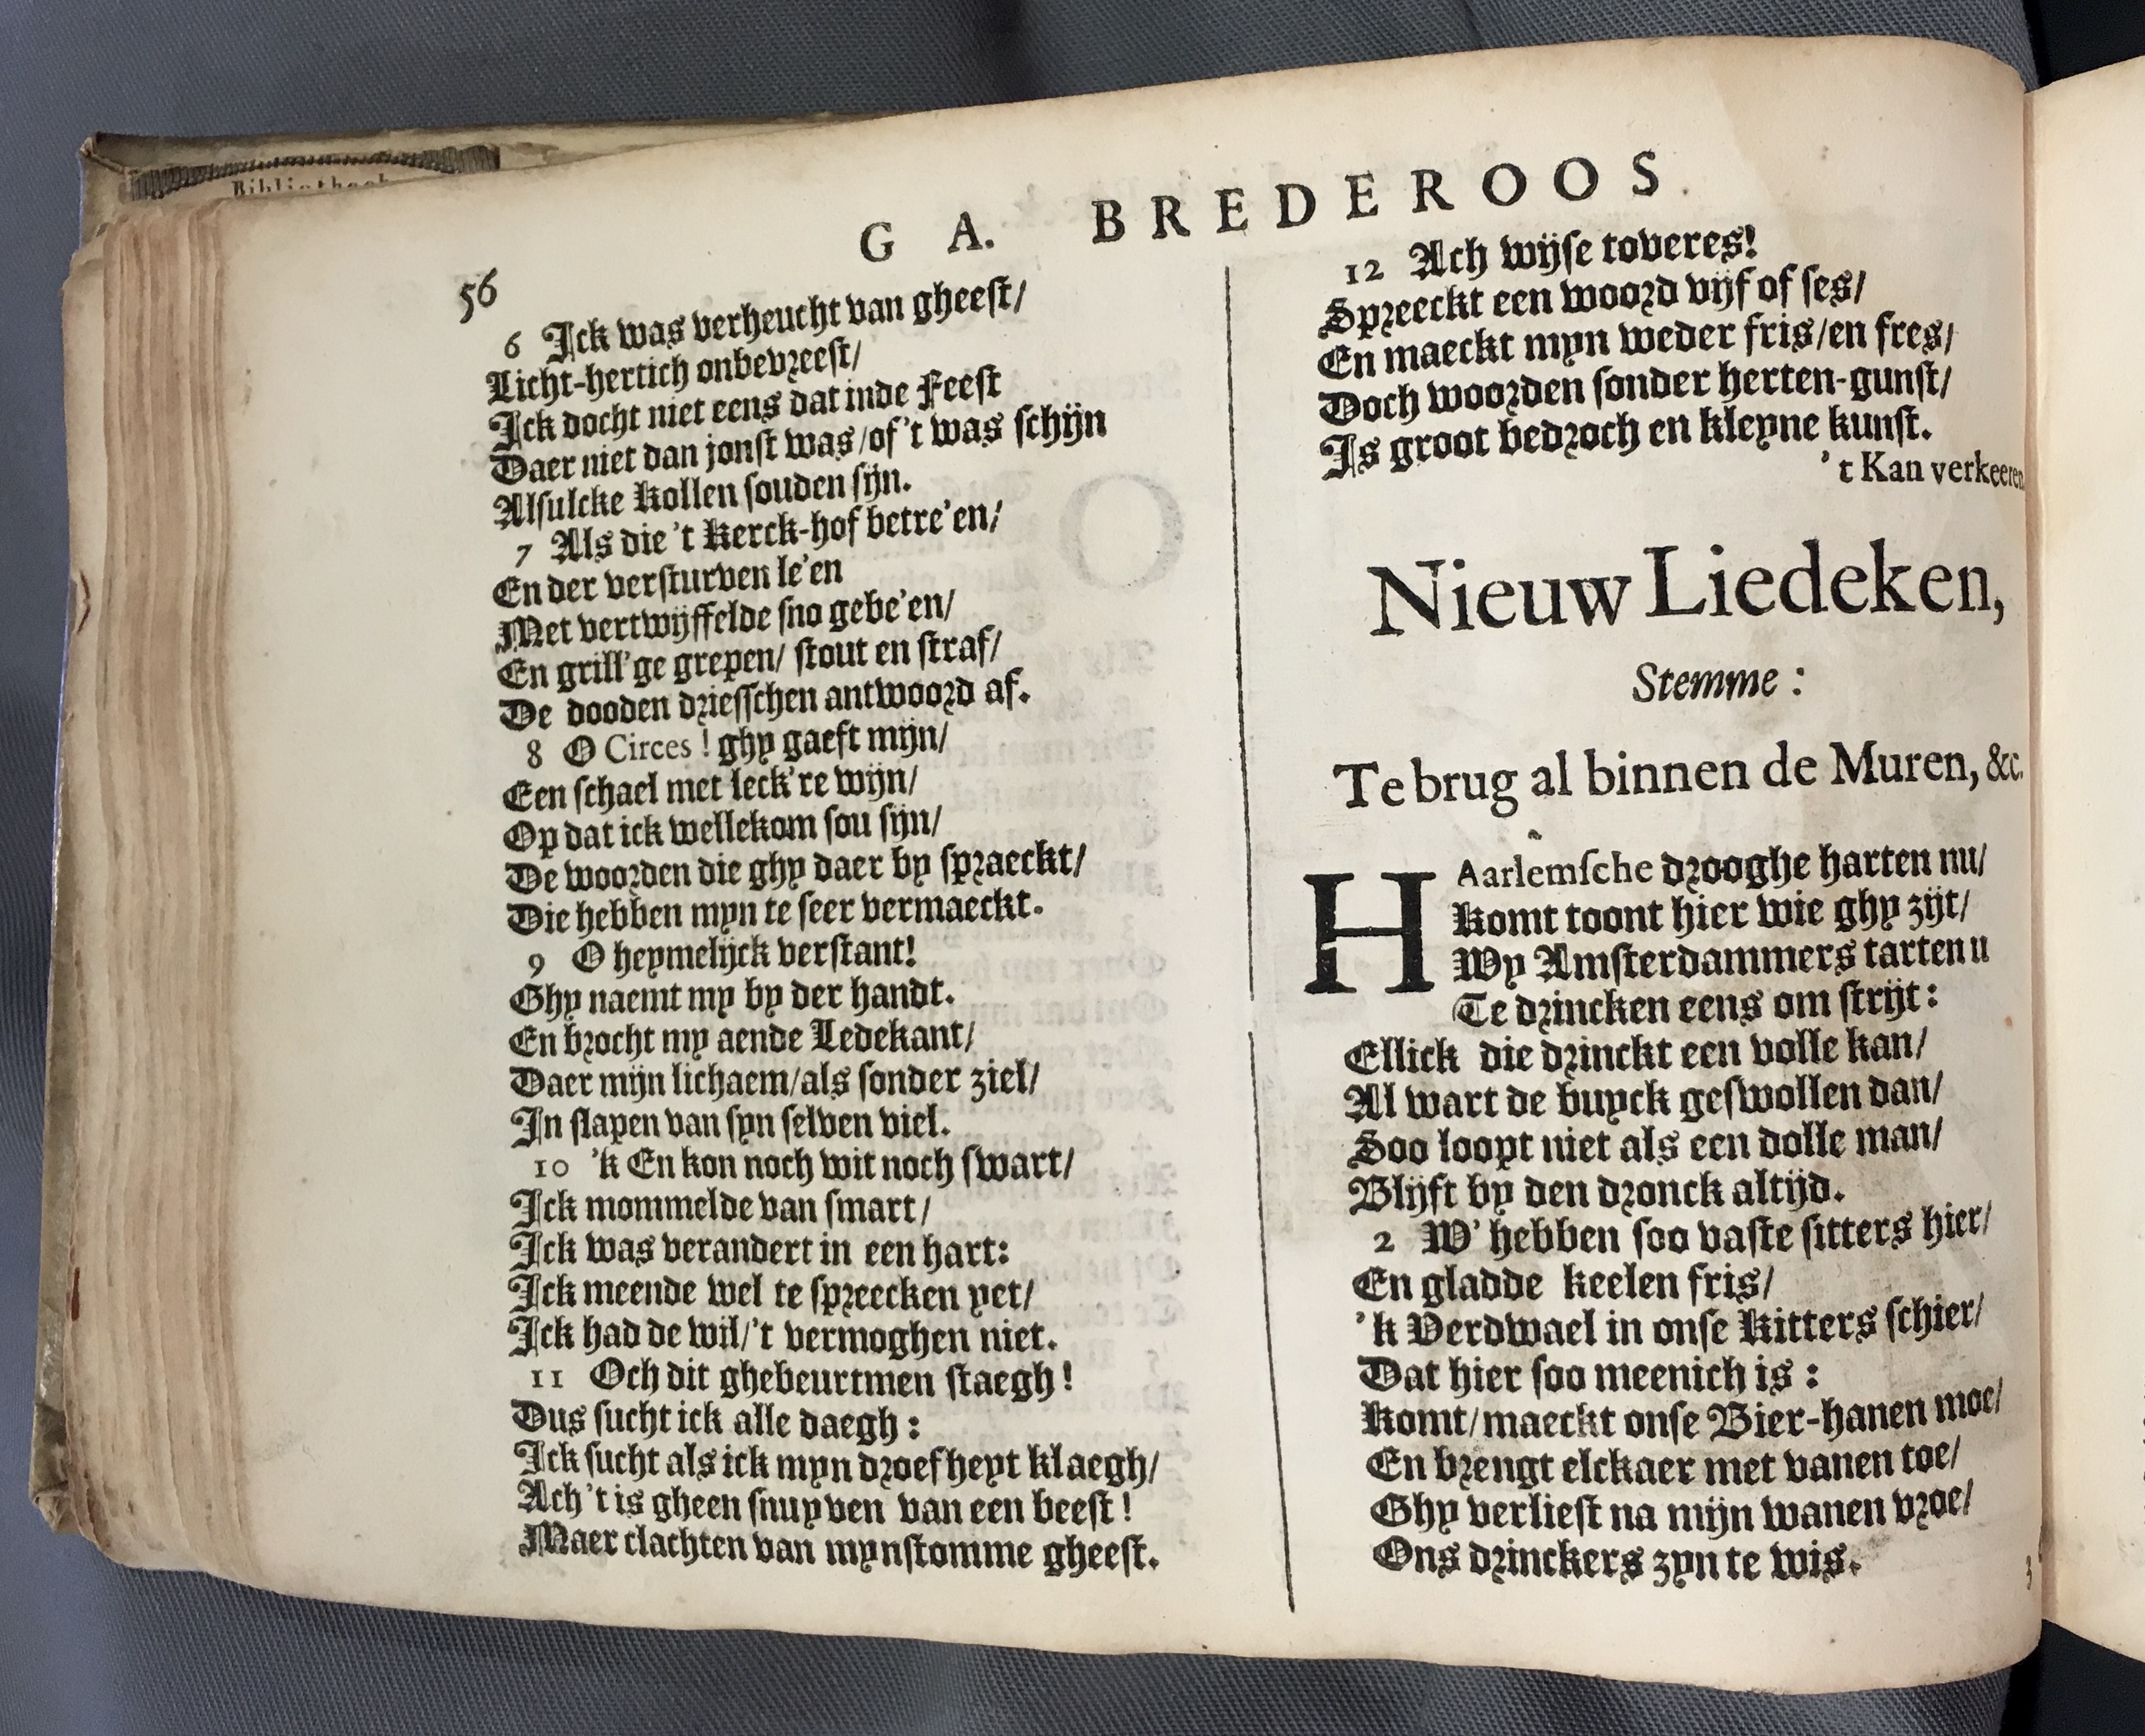 Bibliotheek
56
G A. BREDEROOS
6 Ick was verheucht van gheest/
Licht-hertich onbevreest/
Ick docht niet eens dat inde Feest
Daer niet dan jonst was/of 't was schijn
Alsulcke Kollen souden sijn.
7 Als die 't Kerck-hof betre'en/
En der versturven le'en
Met vertwijffelde sno gebe'en/
En grill'ge grepen/ stout en straf/
De dooden driesschen antwoord af.
8 O Circes ! ghy gaeft mijn/
Een schael met leck're wijn/
Op dat ick wellekom sou sijn/
De woorden die ghy daer by spraeckt/
Die hebben myn te seer vermaeckt.
9 O heymelijck verstant!
Ghy naemt my by der handt.
En brocht my aende Ledekant/
Daer mijn lichaem/als sonder ziel/
In slapen van syn selven viel.
10 'k En kon noch wit noch swart/
Ick mommelde van smart/
Ick was verandert in een hart:
Ick meende wel te spreecken yet/
Ick had de wil/'t vermoghen niet.
11 Och dit ghebeurtmen staegh !
Dus sucht ick alle daegh :
Ick sucht als ick myn droefheyt klaegh/
Ach 't is gheen snuyven van een beest !
Maer clachten van myn stomme gheest.
12 Ach wijse toveres!
Spreeckt een woord vijf of ses/
En maeckt myn weder fris/en fres/
Doch woorden sonder herten-gunst/
Is groot bedroch en kleyne kunst.
't Kan verkeeren.
Nieuw Liedeken,
Stemme :
Te brug al binnen de Muren, &c.
HAarlemsche drooghe harten nu/
Komt toont hier wie ghy zijt/
Wy Amsterdammers tarten u
Te drincken eens om strijt :
Ellick die drinckt een volle kan/
Al wart de buyck geswollen dan/
Soo loopt niet als een dolle man/
Blijft by den dronck altijd.
2 W' hebben soo vaste sitters hier/
En gladde keelen fris/
'k Verdwael in onse Kitters schier/
Dat hier soo meenich is :
Komt/maeckt onse Bier-hanen moe/
En brengt elckaer met vanen toe/
Ghy verliest na mijn wanen vroe/
Ons drinckers zyn te wis.
3